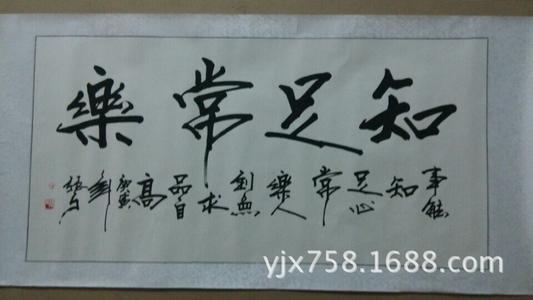 知足常樂
事能知足心常樂人到無求品自高
庚寅年
yjx758.1688.com